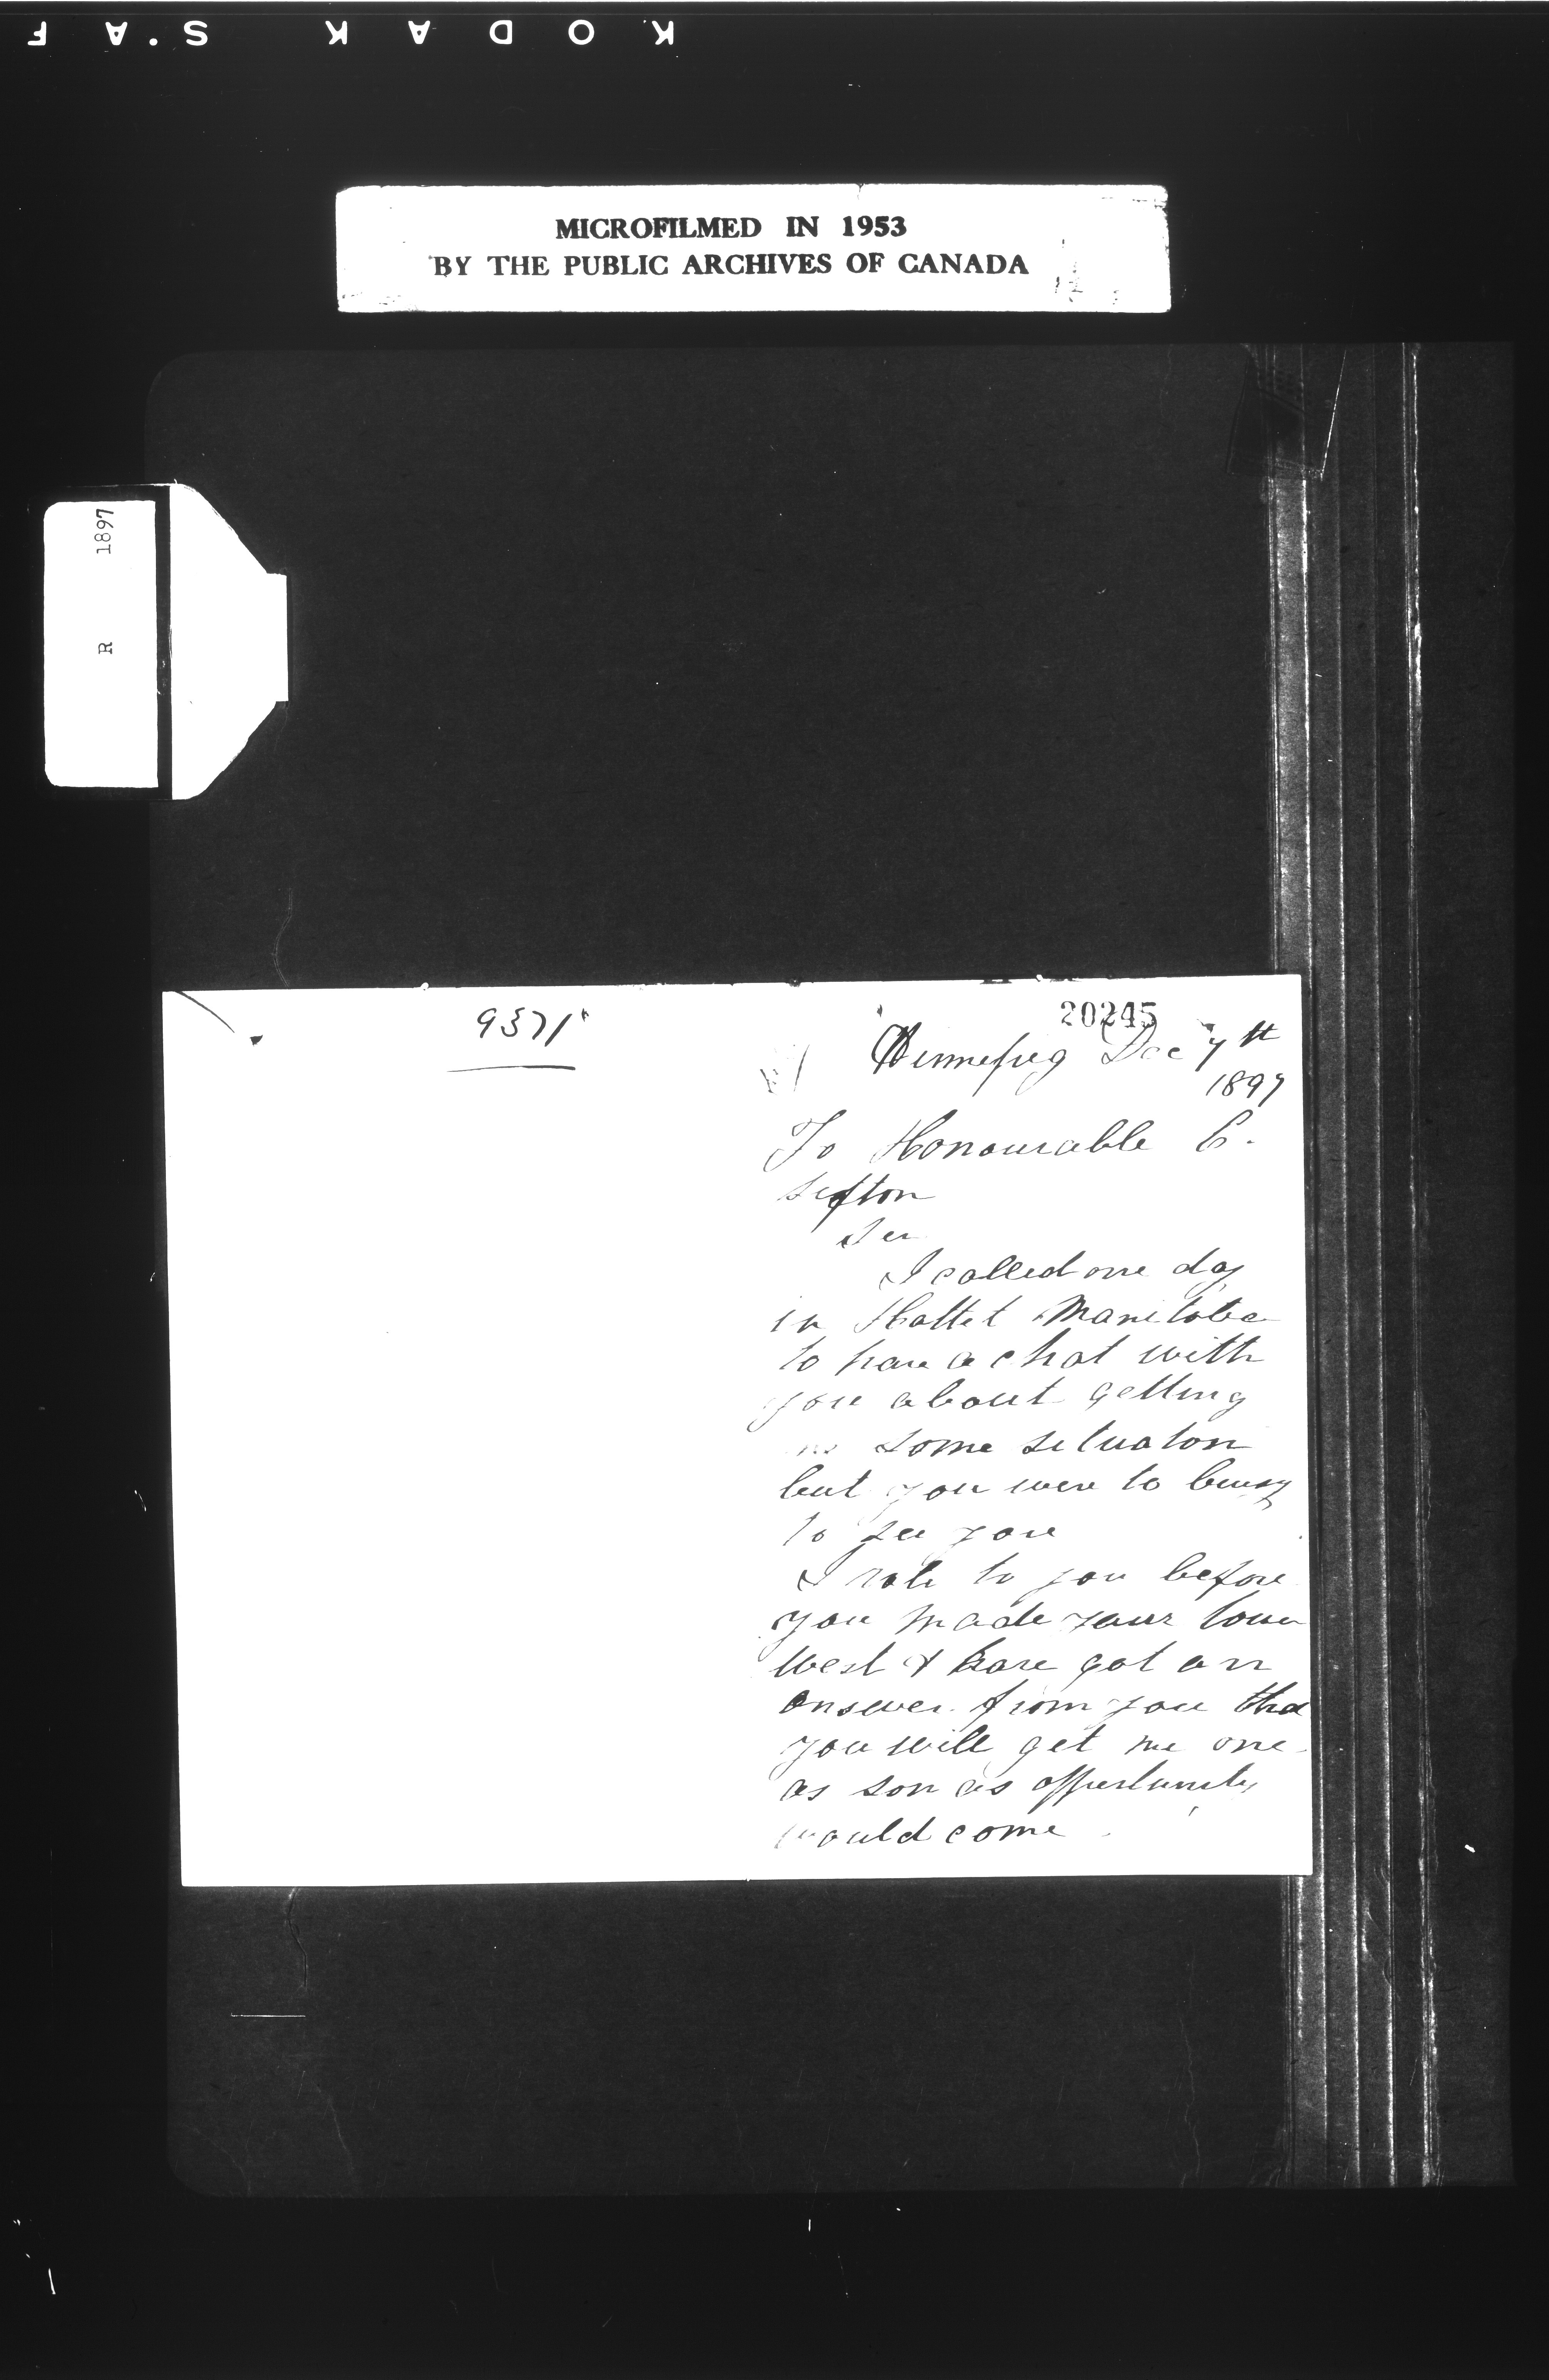 KODAK S.A F
MICROFILMED IN 1953
BY THE PUBLIC ARCHIVES OF CANADA
R 1897
9371
20245
Winnepeg Dec 7th
1897
To Honourable C.
Sifton
Sir
I called one day
in Hottel Manitoba
to have a chat with
you about getting
some situaton
but you were to buisy
to see you
I rote to you before
you made your tour
West & have got an
answer from you tha
you will get me one
as son as oppurtunity
would come